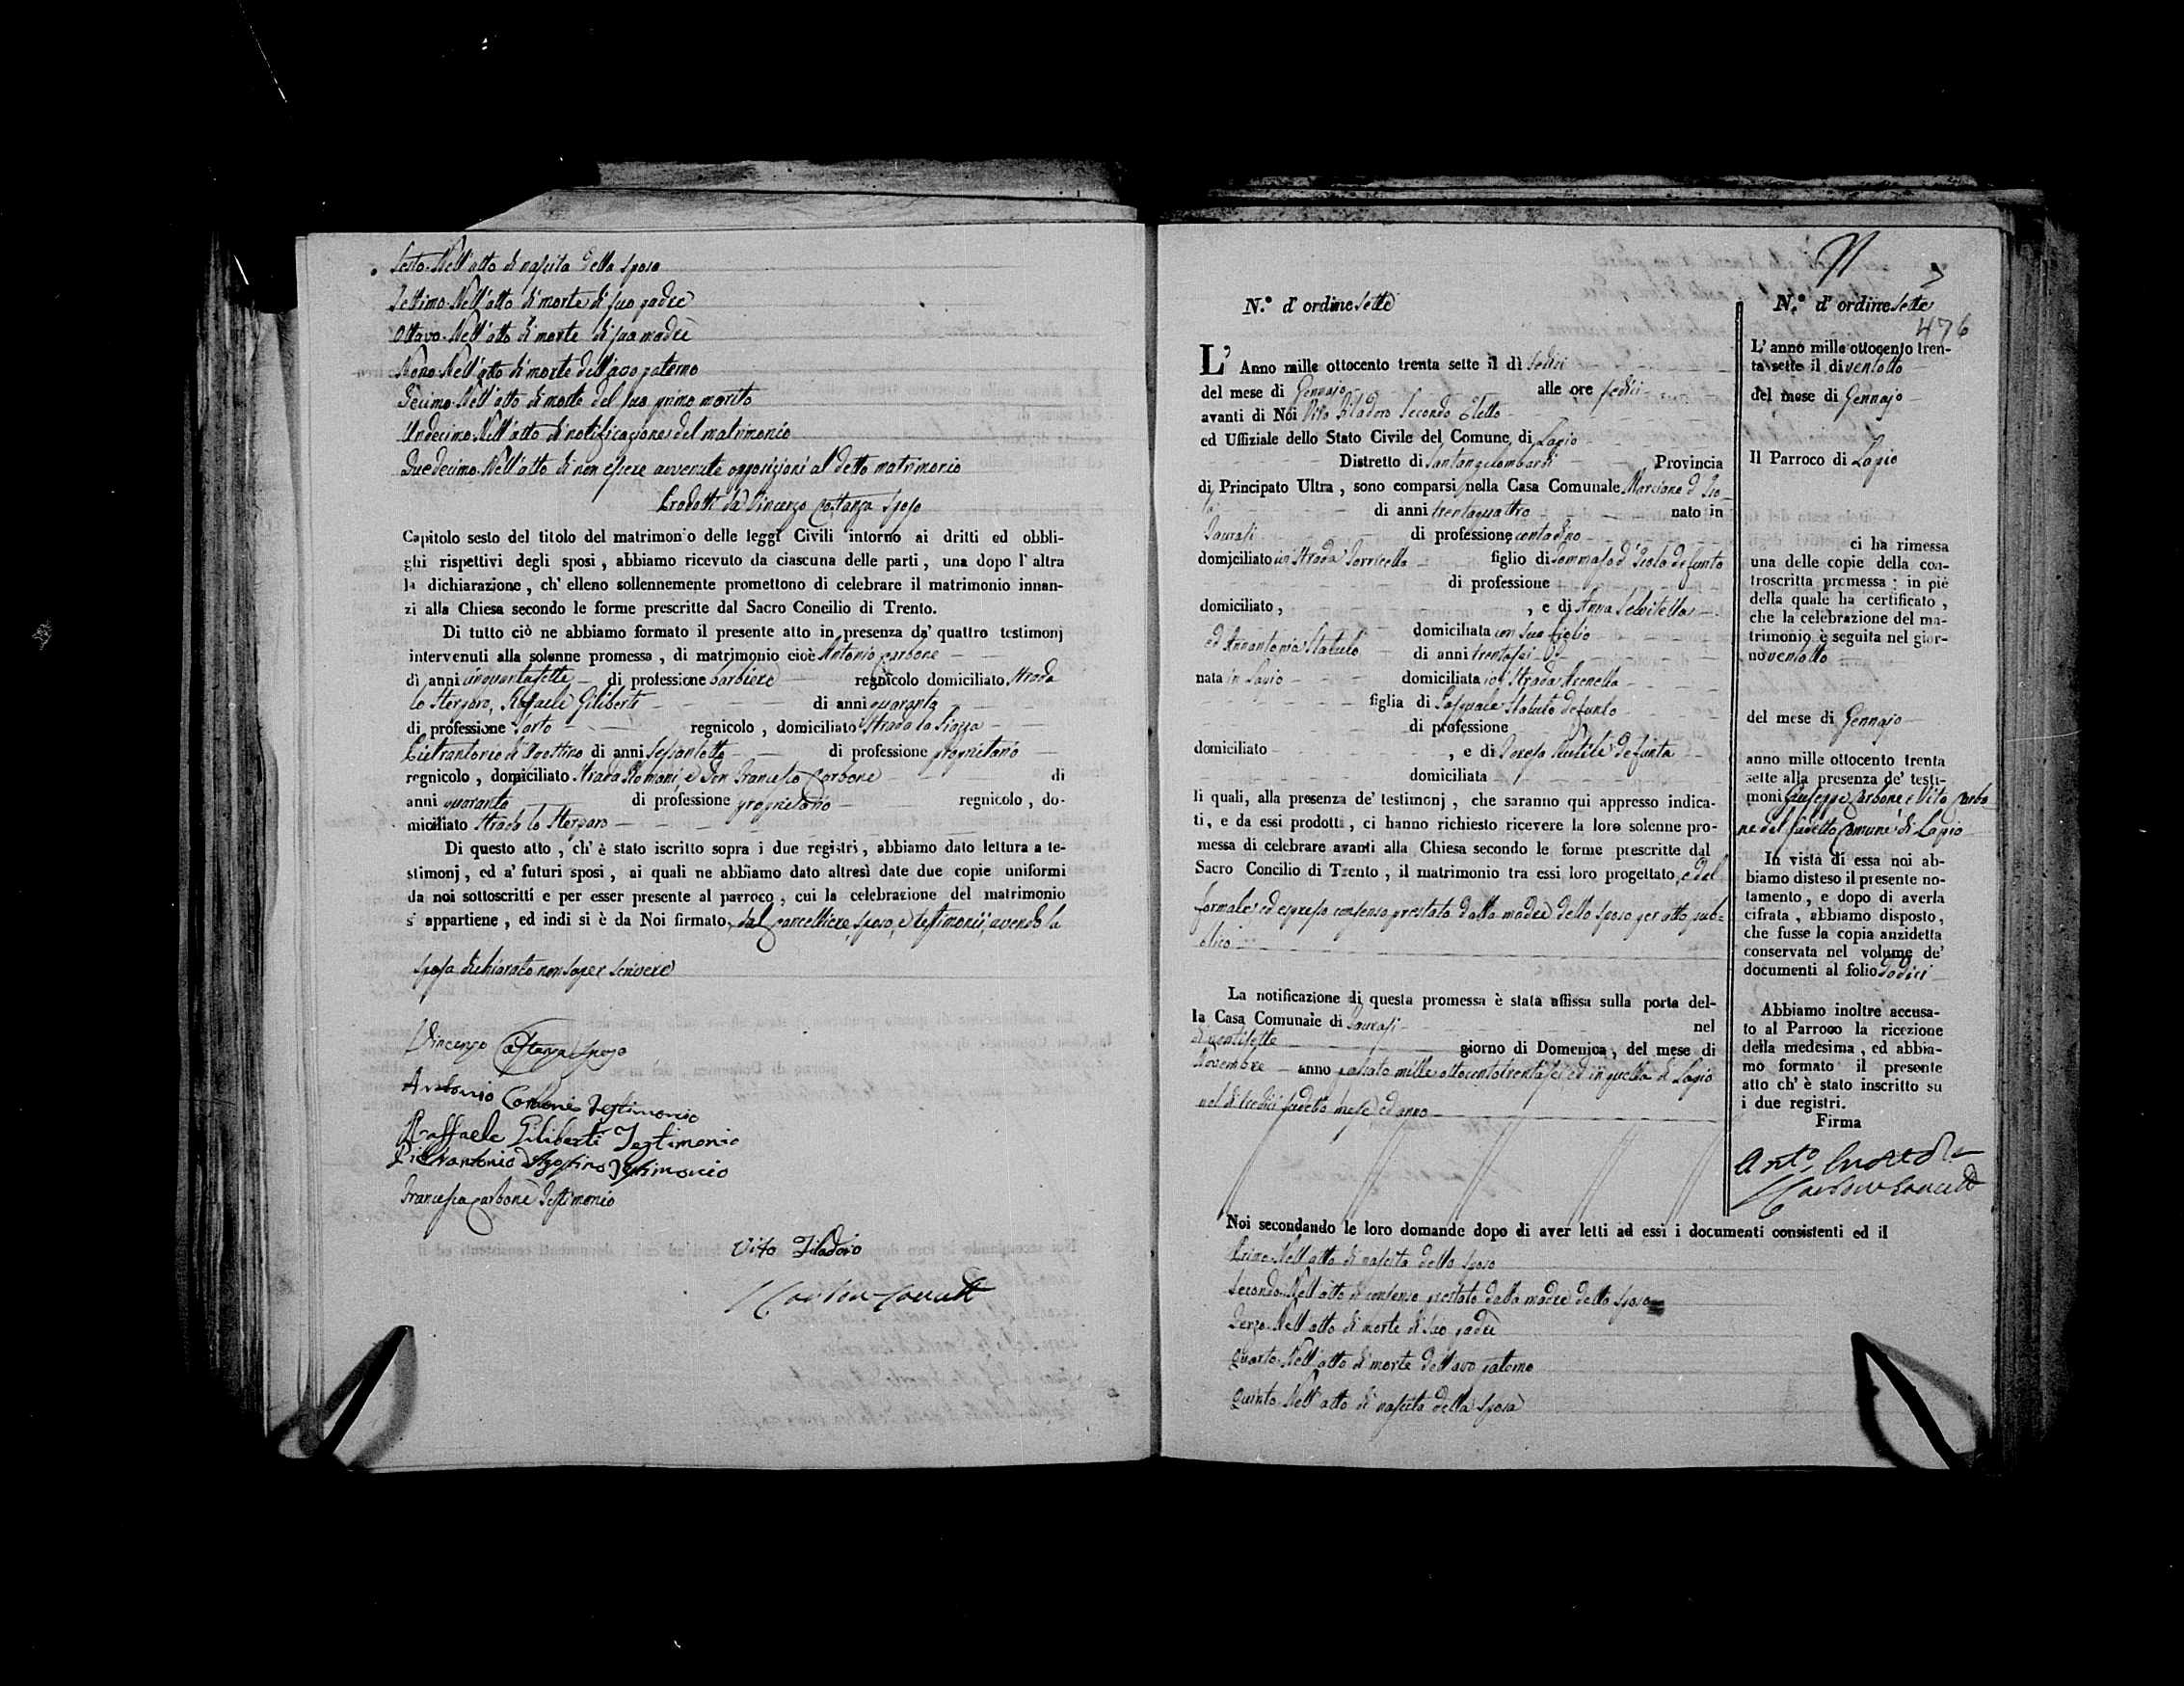 Sesto. Nell'atto di nascita della sposa
Settimo. Nell'atto di morte di suo padre
Ottavo. Nell'atto di morte di sua madre
Nono. Nell'atto di morte dell'avo paterno
Decimo. Nell'atto di morte del suo primo marito
Undecimo. Nell'atto di notificazione del matrimonio
Duedecimo. Nell'atto di non essere avvenute opposizioni al detto matrimonio
Prodotti da Vincenzo Costanza sposo
Capitolo sesto del titolo del matrimonio delle leggi Civili intorno ai dritti ed obbli-
ghi rispettivi degli sposi , abbiamo ricevuto da ciascuna delle parti , una dopo l' altra
la dichiarazione , ch' elleno sollennemente promettono di celebrare il matrimonio innan-
zi alla Chiesa secondo le forme prescritte dal Sacro Concilio di Trento.
Di tutto ciò ne abbiamo formato il presente atto in presenza da' quattro testimonj
intervenuti alla solenne promessa , di matrimonio cioè Antonio Carbone
di anni cinquantasette di professione barbiere regnicolo domiciliato Strada
lo Stergaro, Rafaele Giliberti di anni quaranta
di professione Sarto regnicolo , domiciliato Strada la Piazza
Pietrantonio d'Agostino di anni Sessantotto di professione proprietario
regnicolo , domiciliato Strada Romani, e Don Francesco Carbone di
anni quaranta di professione proprietario regnicolo , do-
miciliato Strada lo Stergaro
Di questo atto , ch' è stato iscritto sopra i due registri , abbiamo dato lettura a te-
stimonj , ed a' futuri sposi , ai quali ne abbiamo dato altresì date due copie uniformi
da noi sottoscritti e per esser presente al parroco , cui la celebrazione del matrimonio
s' appartiene , ed indi si è da Noi firmato, dal cancelliere, sposo, e testimonii, avendo la
sposa dichiarato non saper scrivere
Vincenzo Costanza sposo
Antonio Carbone Testimonio
Raffaele Giliberti Testimonio
Pietrantonio d'Agostino Testimonio
Francesco Carbone Testimonio
Vito Filadoro
N.° d' ordine Sette
L' Anno mille ottocento trenta sette il dì Sedici
del mese di Gennajo alle ore sedici
avanti di Noi Vito Filadoro Secondo Eletto
ed Uffiziale dello Stato Civile del Comune di Lapio
Distretto di Santangelombardi Provincia
di Principato Ultra , sono comparsi nella Casa Comunale Marciano d'
di anni trentaquattro nato in
Taurasi di professione contadino
domiciliato in Strada Torricella figlio di Tommaso d' defunto
di professione
domiciliato , , e di Anna
domiciliata con suo figlio
ed Annantonia Statuto di anni trentasei
nata in Lapio domiciliata in Strada Arenella
figlia di Pasquale Statuto defunto
di professione
domiciliato , e di Teresa defunta
domiciliata
li quali, alla presenza de' testimonj , che saranno qui appresso indica-
ti, e da essi prodotti , ci hanno richiesto ricevere la loro solenne pro-
messa di celebrare avanti alla Chiesa secondo le forme prescritte dal
Sacro Concilio di Trento , il matrimonio tra essi loro progettato, e del
formale, ed espresso consenso prestato dalla madre dello sposo per atto pub-
blico
La notificazione di questa promessa è stata affissa sulla porta del-
la Casa Comunale di Taurasi nel
dì ventisette giorno di Domenica , del mese di
Novembre anno passato mille ottocentotrentasei ed in quella di Lapio
nel dì tredici sudetto mese ed anno
Noi secondando le loro domande dopo di aver letti ad essi i documenti consistenti ed il
Primo. Nell'atto di nascita dello sposo
Secondo. Nell'atto di consenso prestato dalla madre dello sposo
Terzo. Nell'atto di morte di suo padre
Quarto. Nell'atto di morte dell'avo paterno
Quinto. Nell'atto di nascita della sposa
N.° d' ordine Sette
476
L' anno mille ottocento tren-
ta sette il di ventotto
del mese di Gennajo
Il Parroco di Lapio
ci ha rimessa
una delle copie della con-
troscritta promessa : in piè
della quale ha certificato ,
che la celebrazione del ma-
trimonio è seguita nel gior-
no ventotto
del mese di Gennajo
anno mille ottocento trenta
sette alla presenza de' testi-
moni Giuseppe Carbone e Vito Carbo-
ne del sudetto Comune di Lapio
In vista di essa noi ab-
biamo disteso il presente no-
tamento , e dopo di averla
cifrata , abbiamo disposto,
che fusse la copia anzidetta
conservata nel volume de'
documenti al folio dodici
Abbiamo inoltre accusa-
to al Parroco la ricezione
della medesima , ed abbia-
mo formato il presente
atto ch' è stato inscritto su
i due registri.
Firma